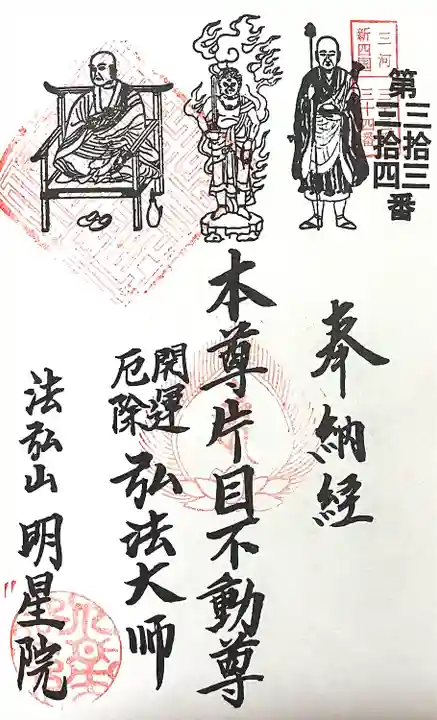 三河
新四国
第三拾三
三拾四番
奉納経
本尊片目不動尊
開運
厄除
弘法大師
法弘山 明星院